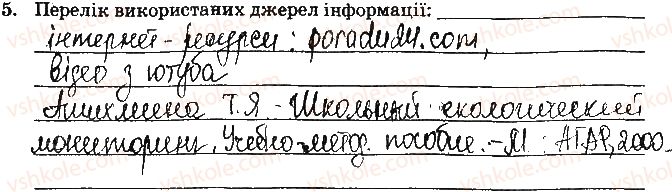 5. Перелік використаних джерел інформації:
інтернет - ресурси: poradudu.com,
відео з ютуба
Ашихмена Т.Я - Школьный екологический
мониторинг. Учебно-метод. пособие. - М : АГАР, 2000